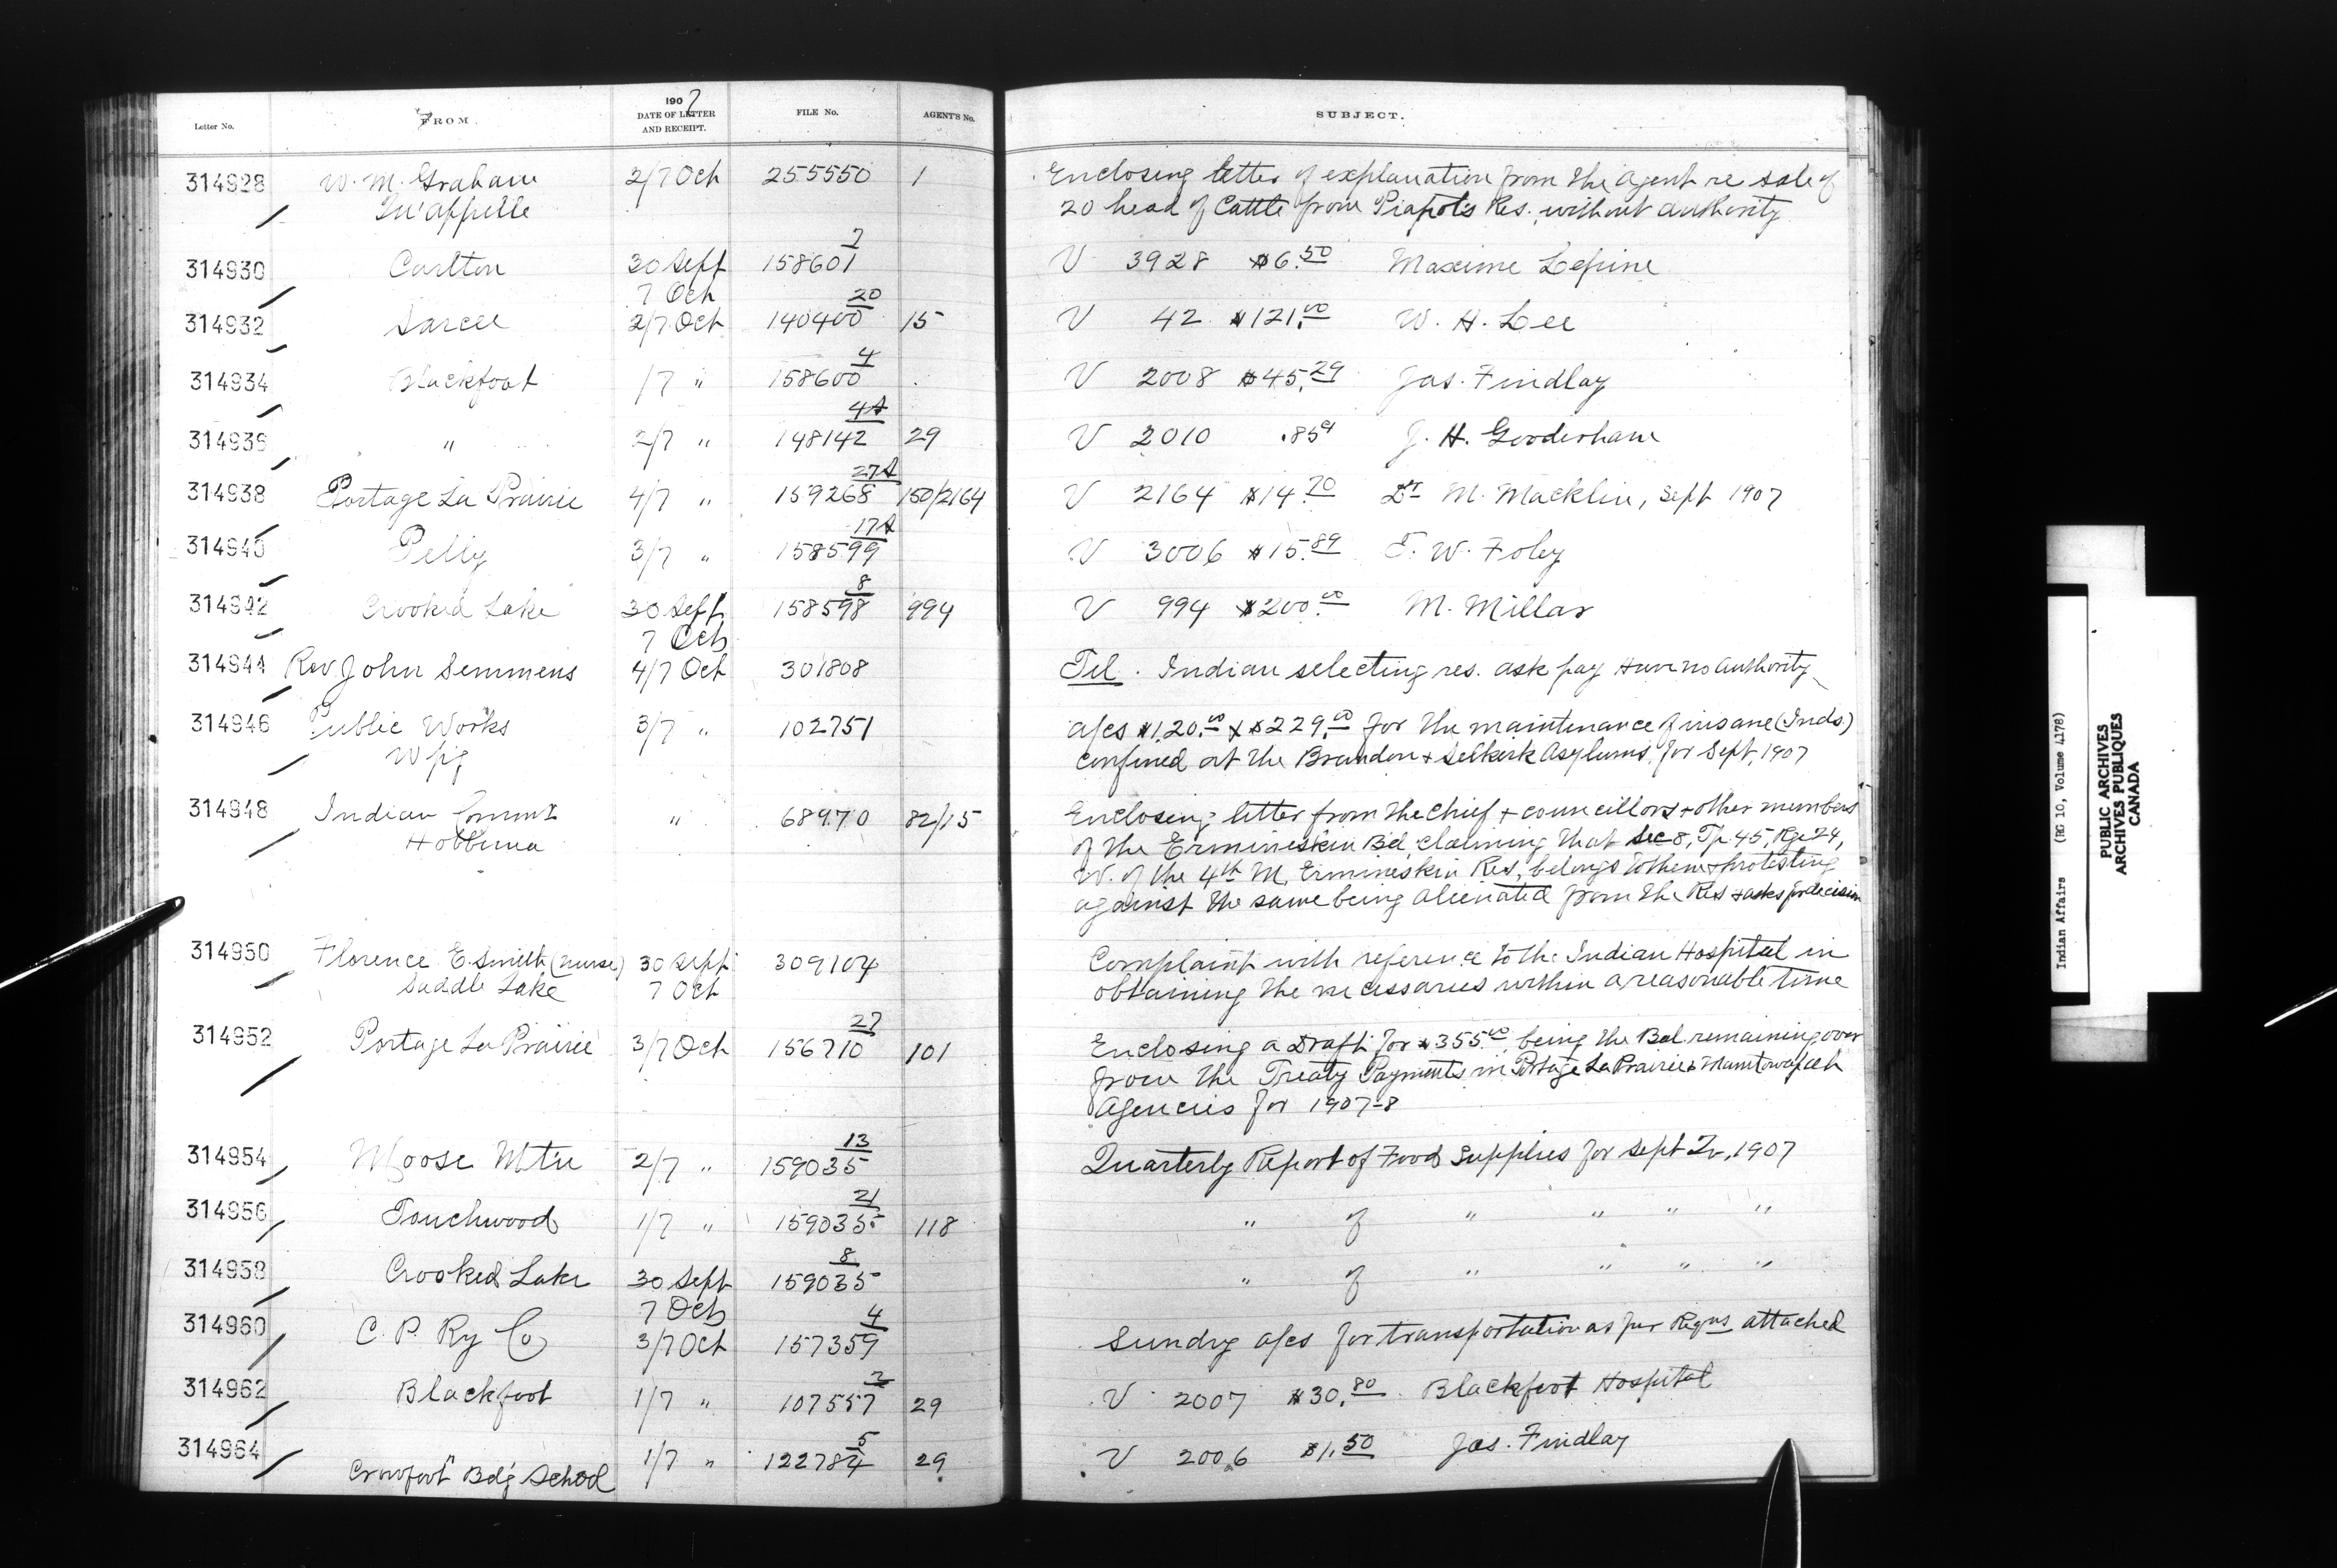 Letter No. FROM. 1907 DATE OF LETTER AND RECEIPT. FILE No. AGENT'S No. SUBJECT.
314928 W. M. Graham 2/7 Oct 255550 1 Enclosing letter of explanation from the Agent re sale of
Qu'appelle 20 head of Cattle from Piapot's Res., without authority
314930 Carlton 30 Sept 158601 7 V 3928 $6.50 Maxime Lepine
7 Oct
314932 Sarcee 2/7 Oct 140400 20 15 V 42 $121.00 W. H. Lee
314934 Blackfoot 1/7 " 158600 4 V 2008 $45.29 Jas. Findlay
314936 " 2/7 " 148142 4A 29 V 2010 .85¢ J. H. Gooderham
314938 Portage La Prairie 4/7 " 159268 27A 150/2164 V 2164 $14.70 Dr M. Macklin, Sept 1907
314940 Pelly 3/7 " 158599 17A V 3006 $15.89 T. W. Foley
314942 Crooked Lake 30 Sept 158598 8 994 V 994 $200.00 M. Millar
7 Oct
314944 Rev John Semmens 4/7 Oct 301808 Tel. Indian selecting res. ask pay Have no authority
314946 Public Works 3/7 " 102751 a/cs $120.00 & $229.00 for the maintenance of insane (Inds.)
Wpg confined at the Brandon & Selkirk Asylums, for Sept, 1907
314948 Indian Commr " 68970 82/15 Enclosing letter from the Chief & councillors & other members
Hobbema of the Ermineskin Bd, claiming that Sec 8, Tp. 45, Rge 24,
W. of the 4th M, Ermineskin Res, belongs to them & protesting
against the same being alienated from the Res & asks for decision
314950 Florence E. Smith (nurse) 30 Sept 309104 Complaint with reference to the Indian Hospital in
Saddle Lake 7 Oct obtaining the necessaries within a reasonable time
314952 Portage La Prairie 3/7 Oct 156710 27 101 Enclosing a Draft for $355.00 being the Bal. remaining over
from the Treaty Payments in Portage La Prairie & Manitowapah
Agencies for 1907-8
314954 Moose Mtn 2/7 " 159035 13 Quarterly Report of Food Supplies for Sept Qr, 1907
314956 Touchwood 1/7 " 159035 21 118 " of " " " "
314958 Crooked Lake 30 Sept 159035 8 " of " " " "
7 Oct
314960 C. P. Ry Co 3/7 Oct 157359 4 Sundry a/cs for transportation as per Reqns attached
314962 Blackfoot 1/7 " 107557 2 29 V 2007 $30.80 Blackfoot Hospital
314964 " 1/7 " 122784 5 29 V 2006 $1.50 Jas. Findlay
Crowfoot Bdg School
Indian Affairs (RG 10, Volume 4178)
PUBLIC ARCHIVES
ARCHIVES PUBLIQUES
CANADA